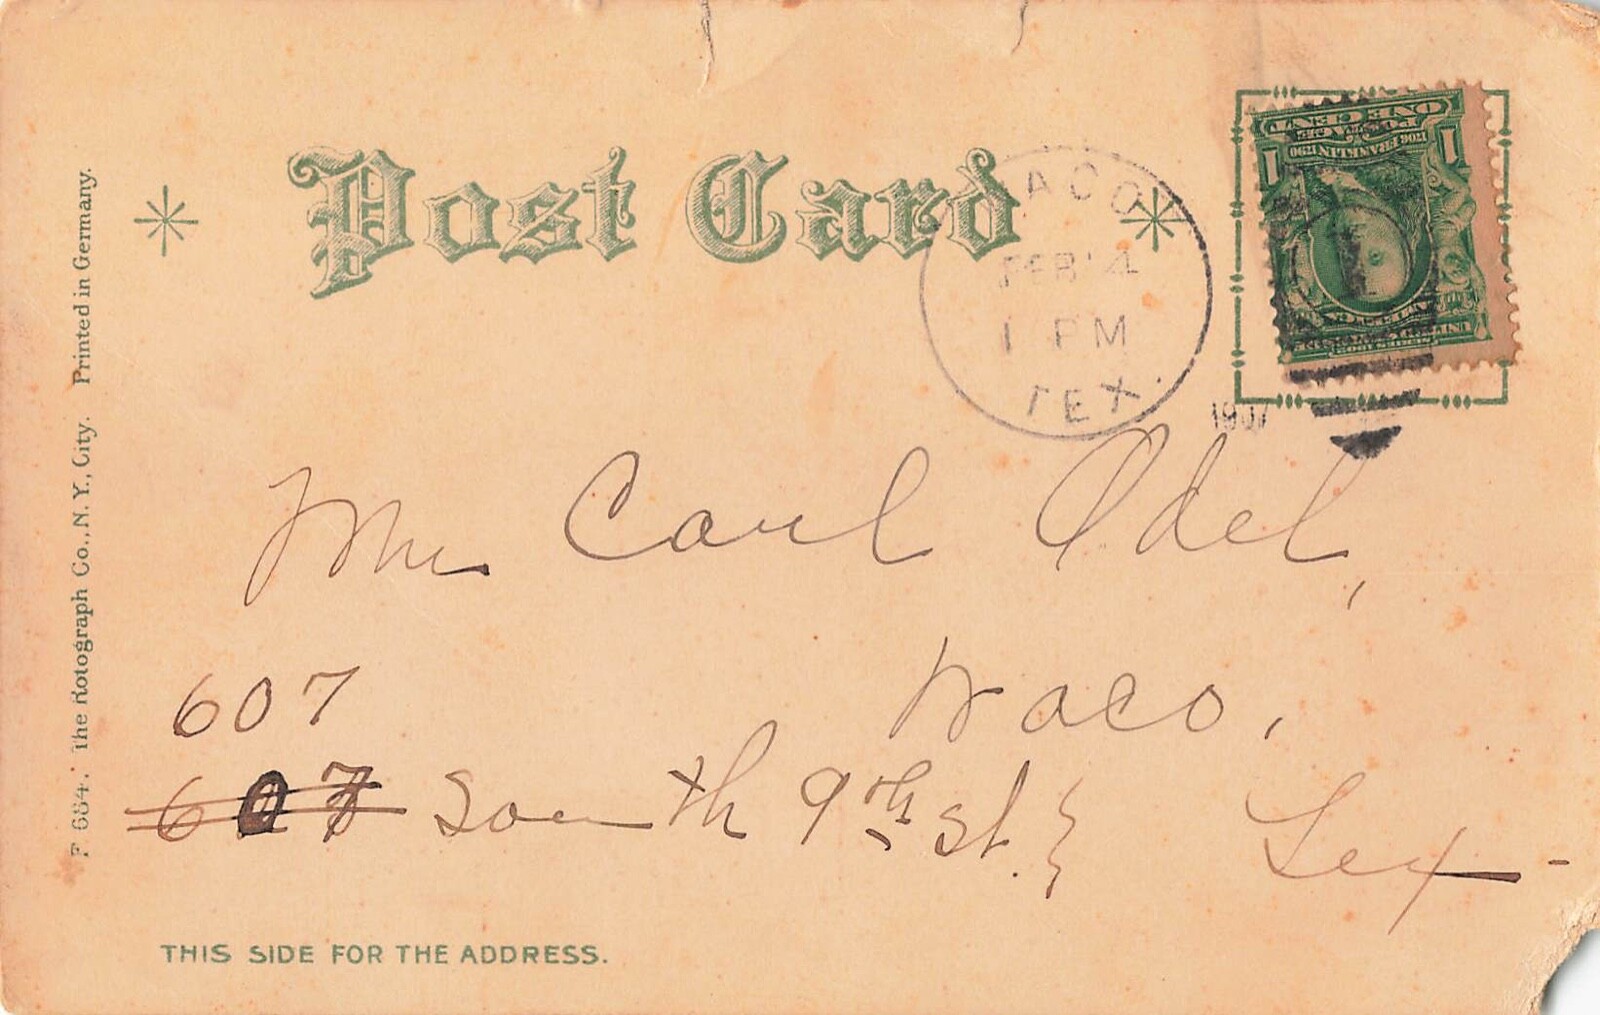 Post Card
WACO
FEB 4
1 PM
TEX.
1907
1 ONE CENT 1
POSTAGE
1706 FRANKLIN 1790
SERIES 1902
UNITED STATES OF AMERICA
Mr Carl Odel,
607 Waco,
607 South 9th st. Tex-
THIS SIDE FOR THE ADDRESS.
F 684. The Rotograph Co., N. Y., City. Printed in Germany.